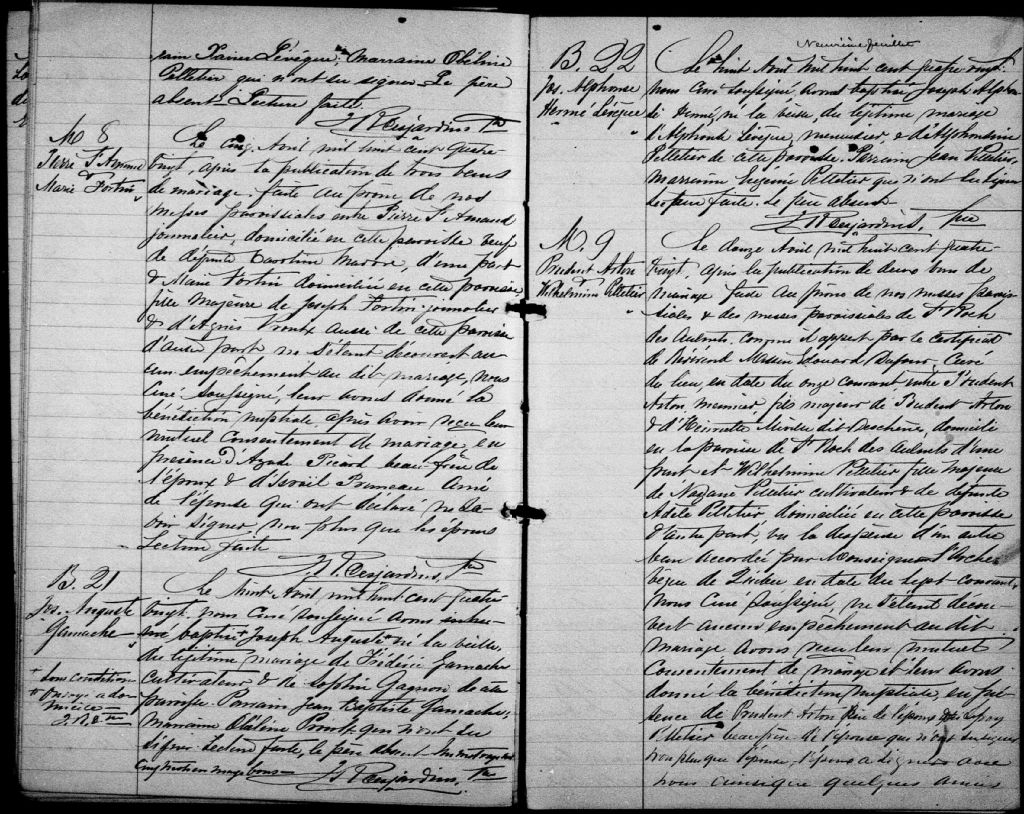 rain Xavier Lévêque, Marraine Obéline
Pelletier qui n'ont su signer. Le père
absent. Lecture faite.
Desjardins, Ptre
M 8
Pierre St Amand
&
Marie Fortin
Le cinq Avril mil huit cent quatre
vingt, après la publication de trois bans
de mariage, faite au prône de nos
messes paroissiales entre Pierre St Amand
journalier, domicilié en cette paroisse veuf
de défunte Caroline, d'une part
& Marie Fortin domiciliée en cette paroisse
fille majeure de Joseph Fortin journalier
& d'Agnès Proulx aussi de cette paroisse
d'autre part, ne s'étant découvert au
cun empêchement au dit mariage, nous
Curé soussigné, leur avons donné la
bénédiction nuptiale, après avoir reçu leur
mutuel consentement de mariage, en
présence d'Azade Picard beau-frère de
l'époux & d'Israël Primeau Ami
de l'épouse qui ont déclaré ne sa-
voir signer non plus que les époux
Lecture faite
Desjardins, Ptre
B. 21
Jos. Auguste
Gamache
+ sous condition
Le huit Avril mil huit cent quatre
vingt, nous Curé soussigné avons
baptisé + Joseph Auguste né la veille,
du légitime mariage de Frédéric Gamache
cultivateur & de Sophie Gagnon de cette
paroisse. Parrain Jean Baptiste Gamache,
Marraine Obéline Proulx qui n'ont su
signer. Lecture faite, le père absent.
Desjardins, Ptre
Neuvième feuillet
B. 22
Jos. Alphonse
Hermé Lévêque
Le huit Avril mil huit cent quatre vingt
nous Curé soussigné avons baptisé Joseph Alphon
se Hermé, né la veille du légitime mariage
d'Alphonse Lévêque, menuisier, & de
Pelletier de cette paroisse. Parrain Jean Pelletier,
marraine Eugénie Pelletier qui n'ont su signer
Lecture faite. Le père absent
Desjardins, Ptre
M. 9
Prudent Aston
&
Wilhelmine Pelletier
Le douze Avril mil huit cent quatre-
vingt, après la publication de deux bans de
mariage faite au prône de nos messes parois
siales & des messes paroissiales de St Roch
des Aulnets, comme il appert par le certificat
de Révérend Messire Edouard Dufour, Curé
du lieu, en date du onze courant entre Prudent
Aston, meunier, fils majeur de Prudent Aston
& d'Henriette Miville dit Deschène, domicilié
en la paroisse de St Roch des Aulnets d'une
part, et Wilhelmine Pelletier fille majeure
de Nazaire Pelletier cultivateur & de défunte
Adèle Pelletier, domiciliée en cette paroisse
d'autre part, vu la dispense d'un autre
ban accordée par Monseigneur l'Arche
vêque de Québec en date du sept courant,
Nous Curé soussigné, ne s'étant décou-
vert aucun empêchement au dit
mariage avons reçu leur mutuel
Consentement de mariage et leur avons
donné la bénédiction nuptiale, en pré
sence de Prudent Aston père de l'époux
Pelletier beau-père de l'épouse qui n'ont su signer
non plus que l'épouse, l'époux a signé avec
nous ainsi que quelques amis